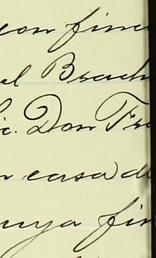 con fin
el Brach
ic. Don Fra
n casa de
uya fir